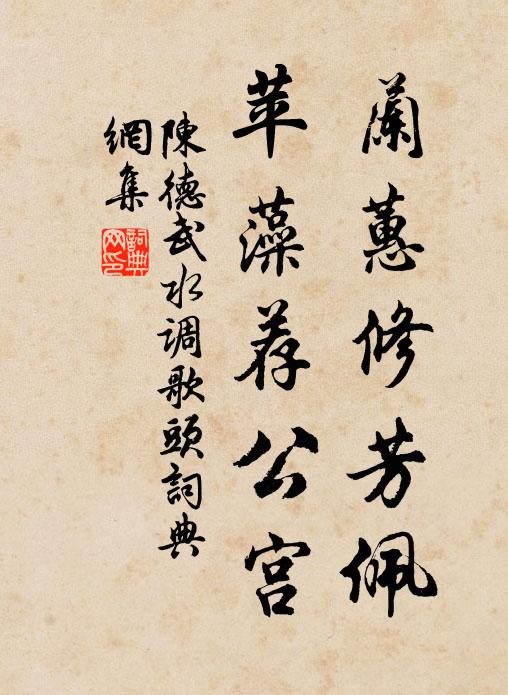 蘭蕙修芳佩
苹藻荐公宫
陳德武水调歌頭詞典
網集
詞典网印